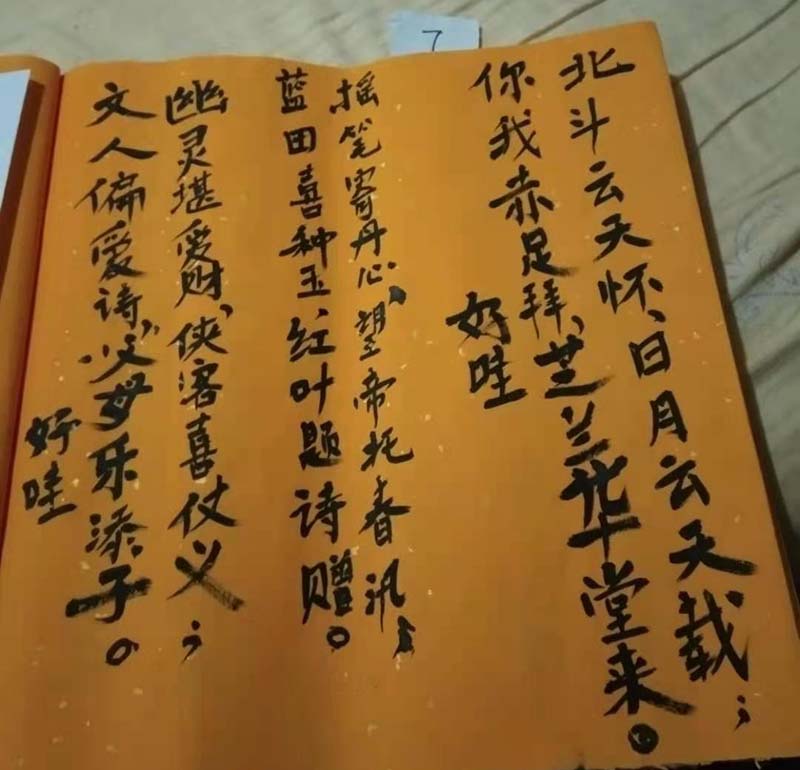 7
北斗云天怀、日月云天载；
你我赤足拜、芝兰华堂来。
好哇
摇笔寄丹心、望帝托春汛；
蓝田喜种玉、红叶题诗赠。
幽灵堪爱财、侠客喜仗义；
文人偏爱诗、父母乐添子。
好哇